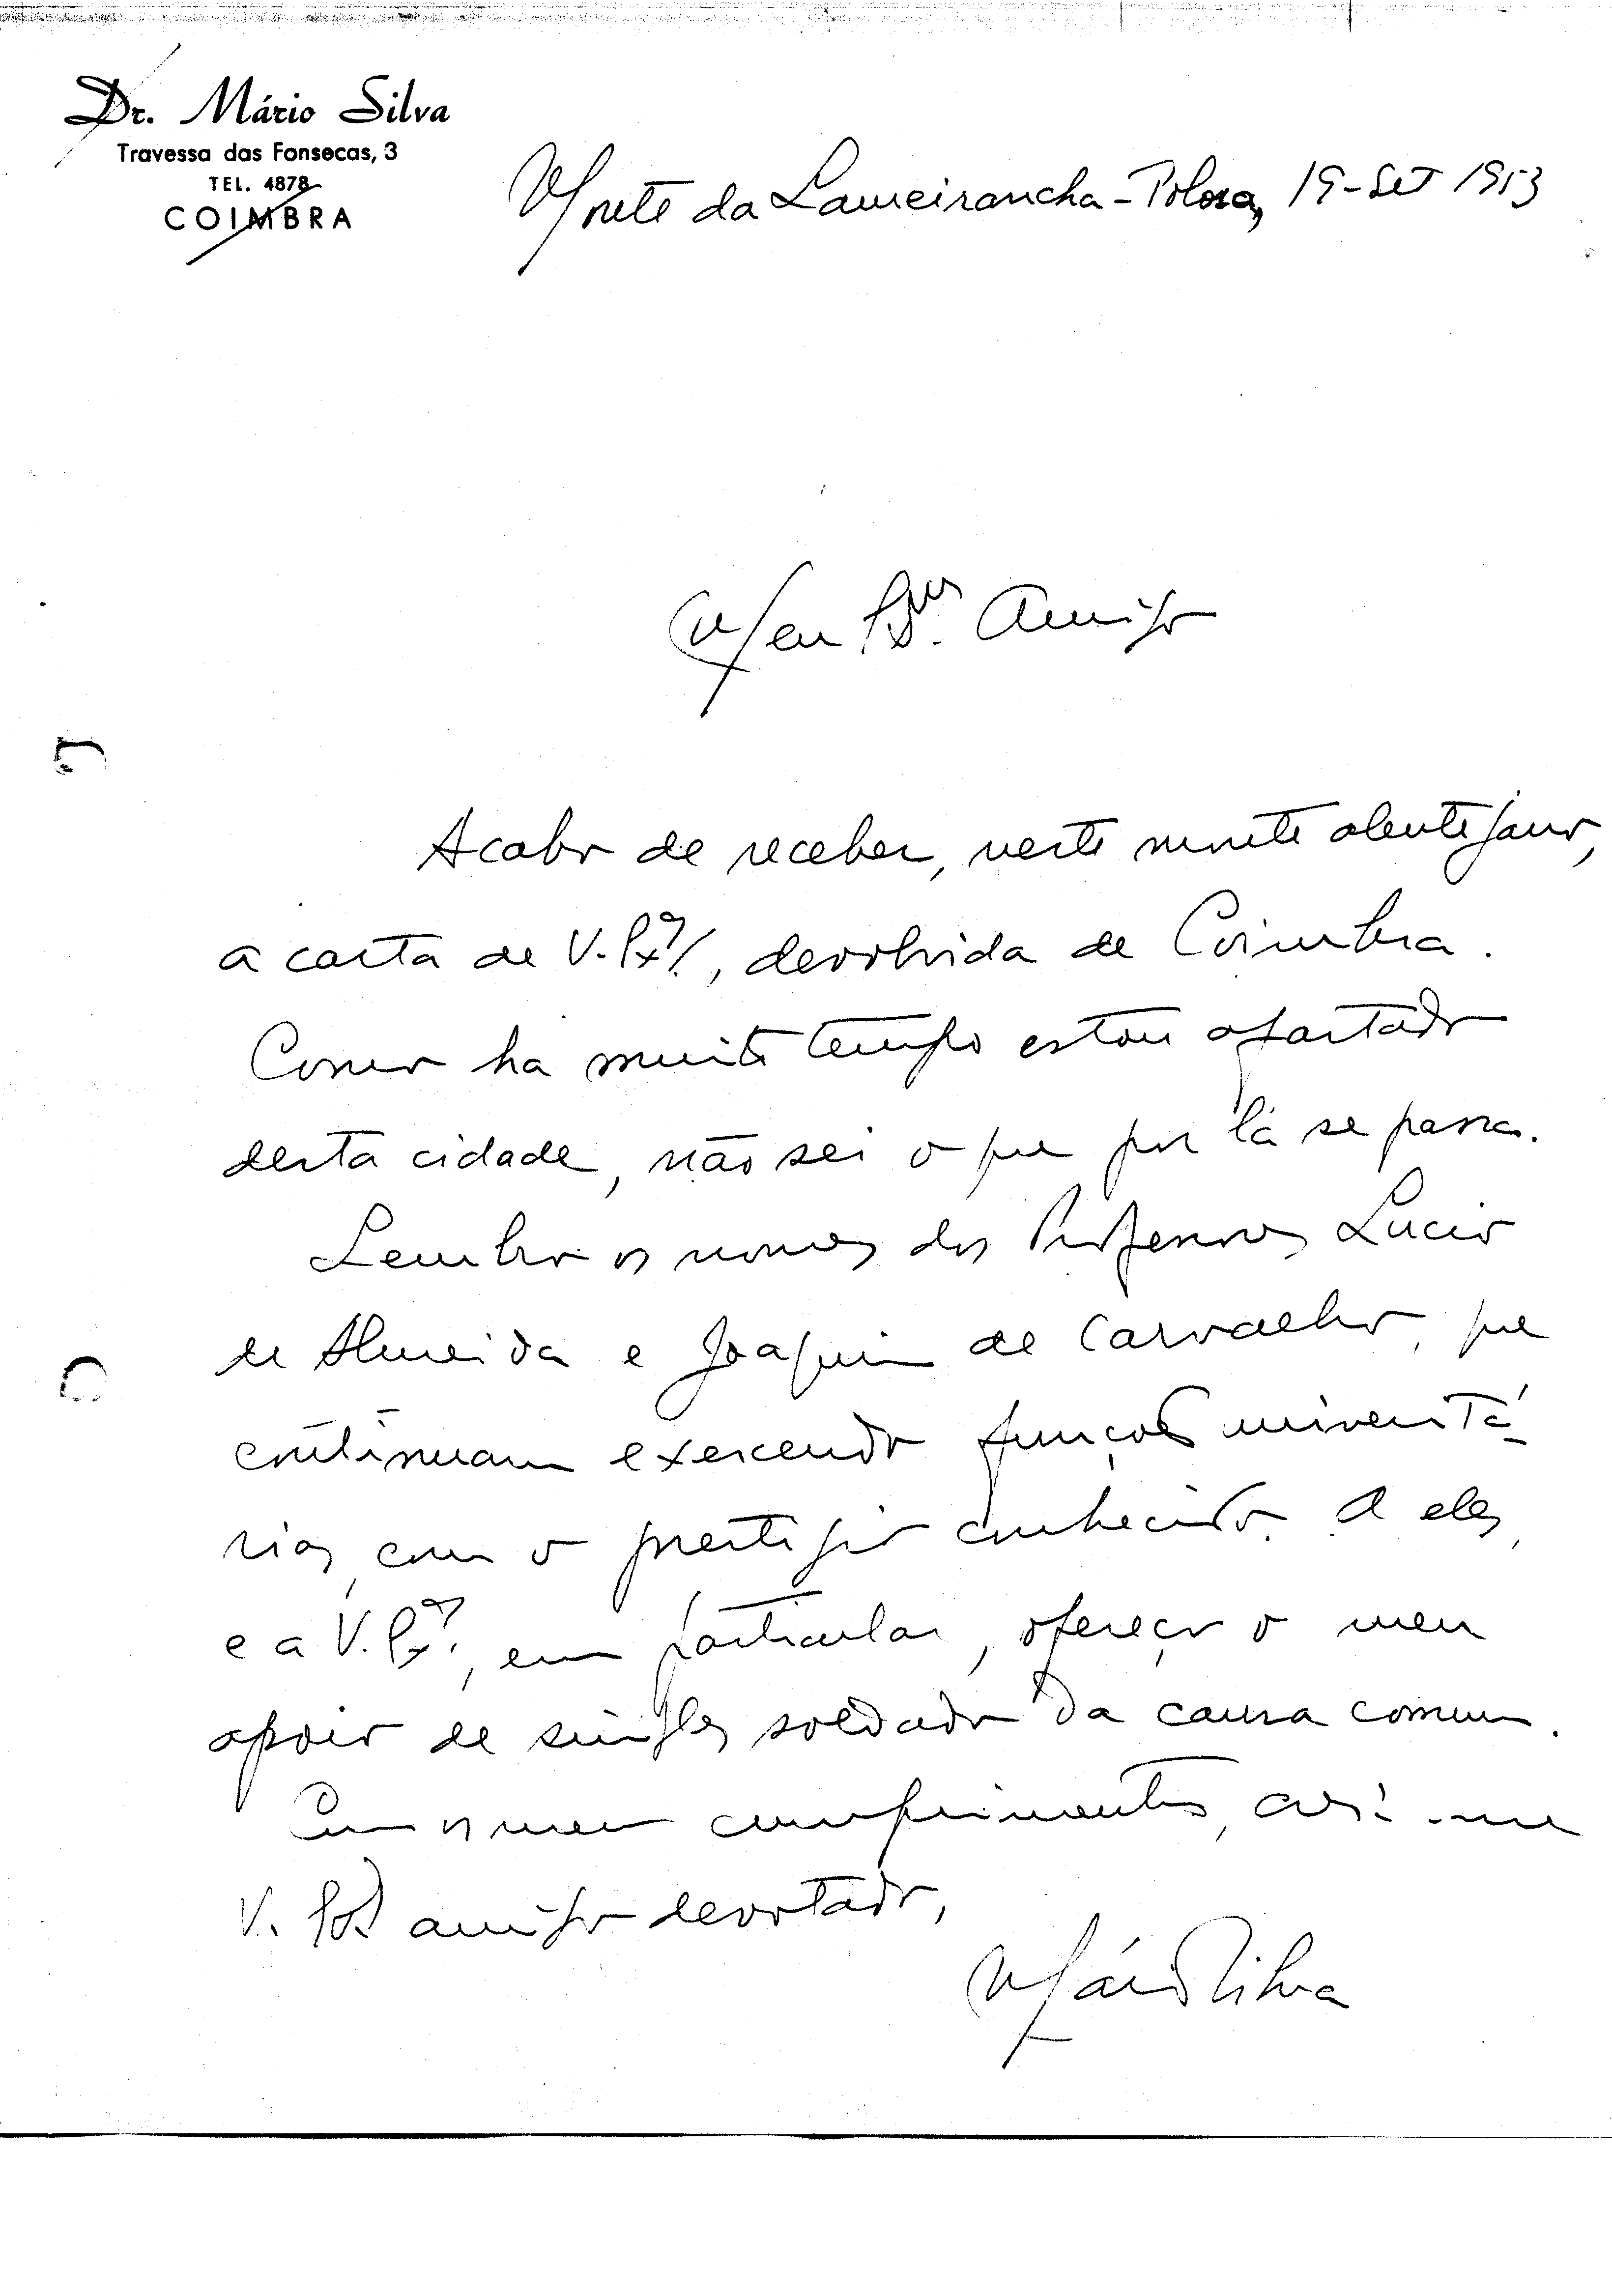 Dr. Mário Silva
Travessa das Fonsecas, 3
TEL. 4878
COIMBRA
Monte da Lameirancha - 19-Set 1953
Meu Exmo. Amigo
Acabo de receber, neste monte alentejano,
a carta de V. Exª., devolvida de Coimbra.
Como ha muito tempo estou afastado
desta cidade, não sei o que por lá se passa.
Lembro os nomes dos Professores Lucio
de Almeida e Joaquim de Carvalho, que
continuam exercendo funções universitá-
rias, com o prestigio conhecido. A eles,
e a V. Exª., em particular, ofereço o meu
apoio de simples soldado da causa comum.
Com os meus cumprimentos, creia-me
V. amigo devotado,
Mário Silva